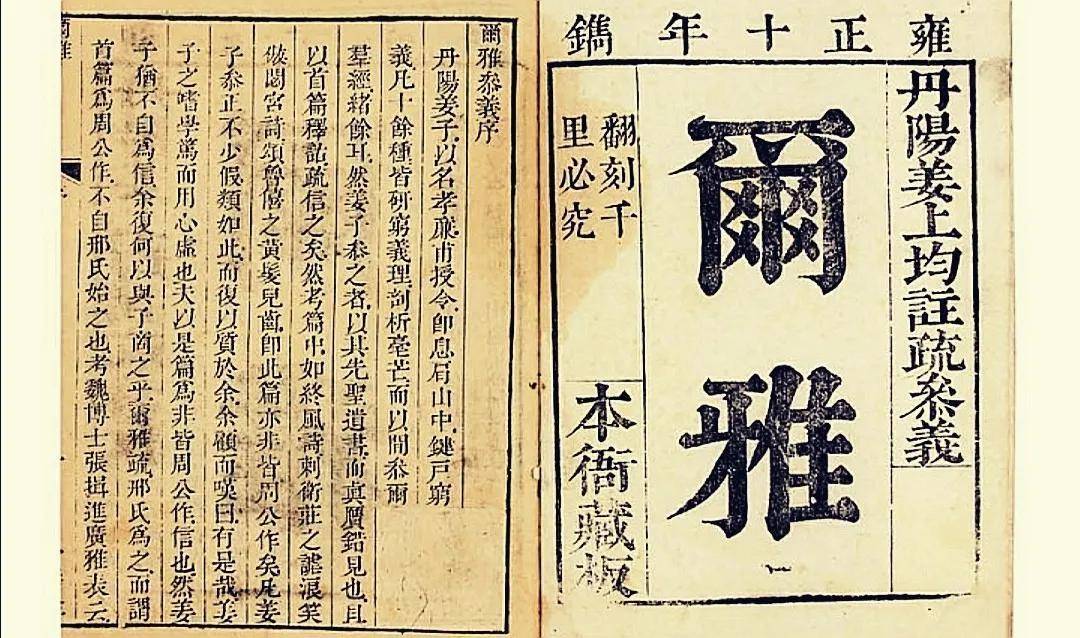 雍正十年鐫
丹陽姜上均註疏叅義
爾雅
翻刻千
里必究
本衙藏板
爾雅叅義序
丹陽姜子以名孝廉甫授令即息肩山中鍵戸窮
義凡十餘種皆研窮義理剖析毫芒而以間叅爾
羣經緒餘耳然姜子叅之者以其先聖遺書而真贋錯見也且
以首篇釋詁疏信之矣然考篇中如終風詩刺衛莊之謔浪笑
傲閟宮詩頌魯僖之黃髮兒齒即此篇亦非皆周公作矣凡姜
子叅正不少假類如此而復以質於余余顧而嘆曰有是哉姜
子之嗜學篤而用心虛也夫以是篇爲非皆周公作信也然姜
子猶不自爲信余復何以與子商之乎爾雅疏邢氏爲之而謂
首篇爲周公作不自邢氏始之也考魏博士張揖進廣雅表云
爾雅